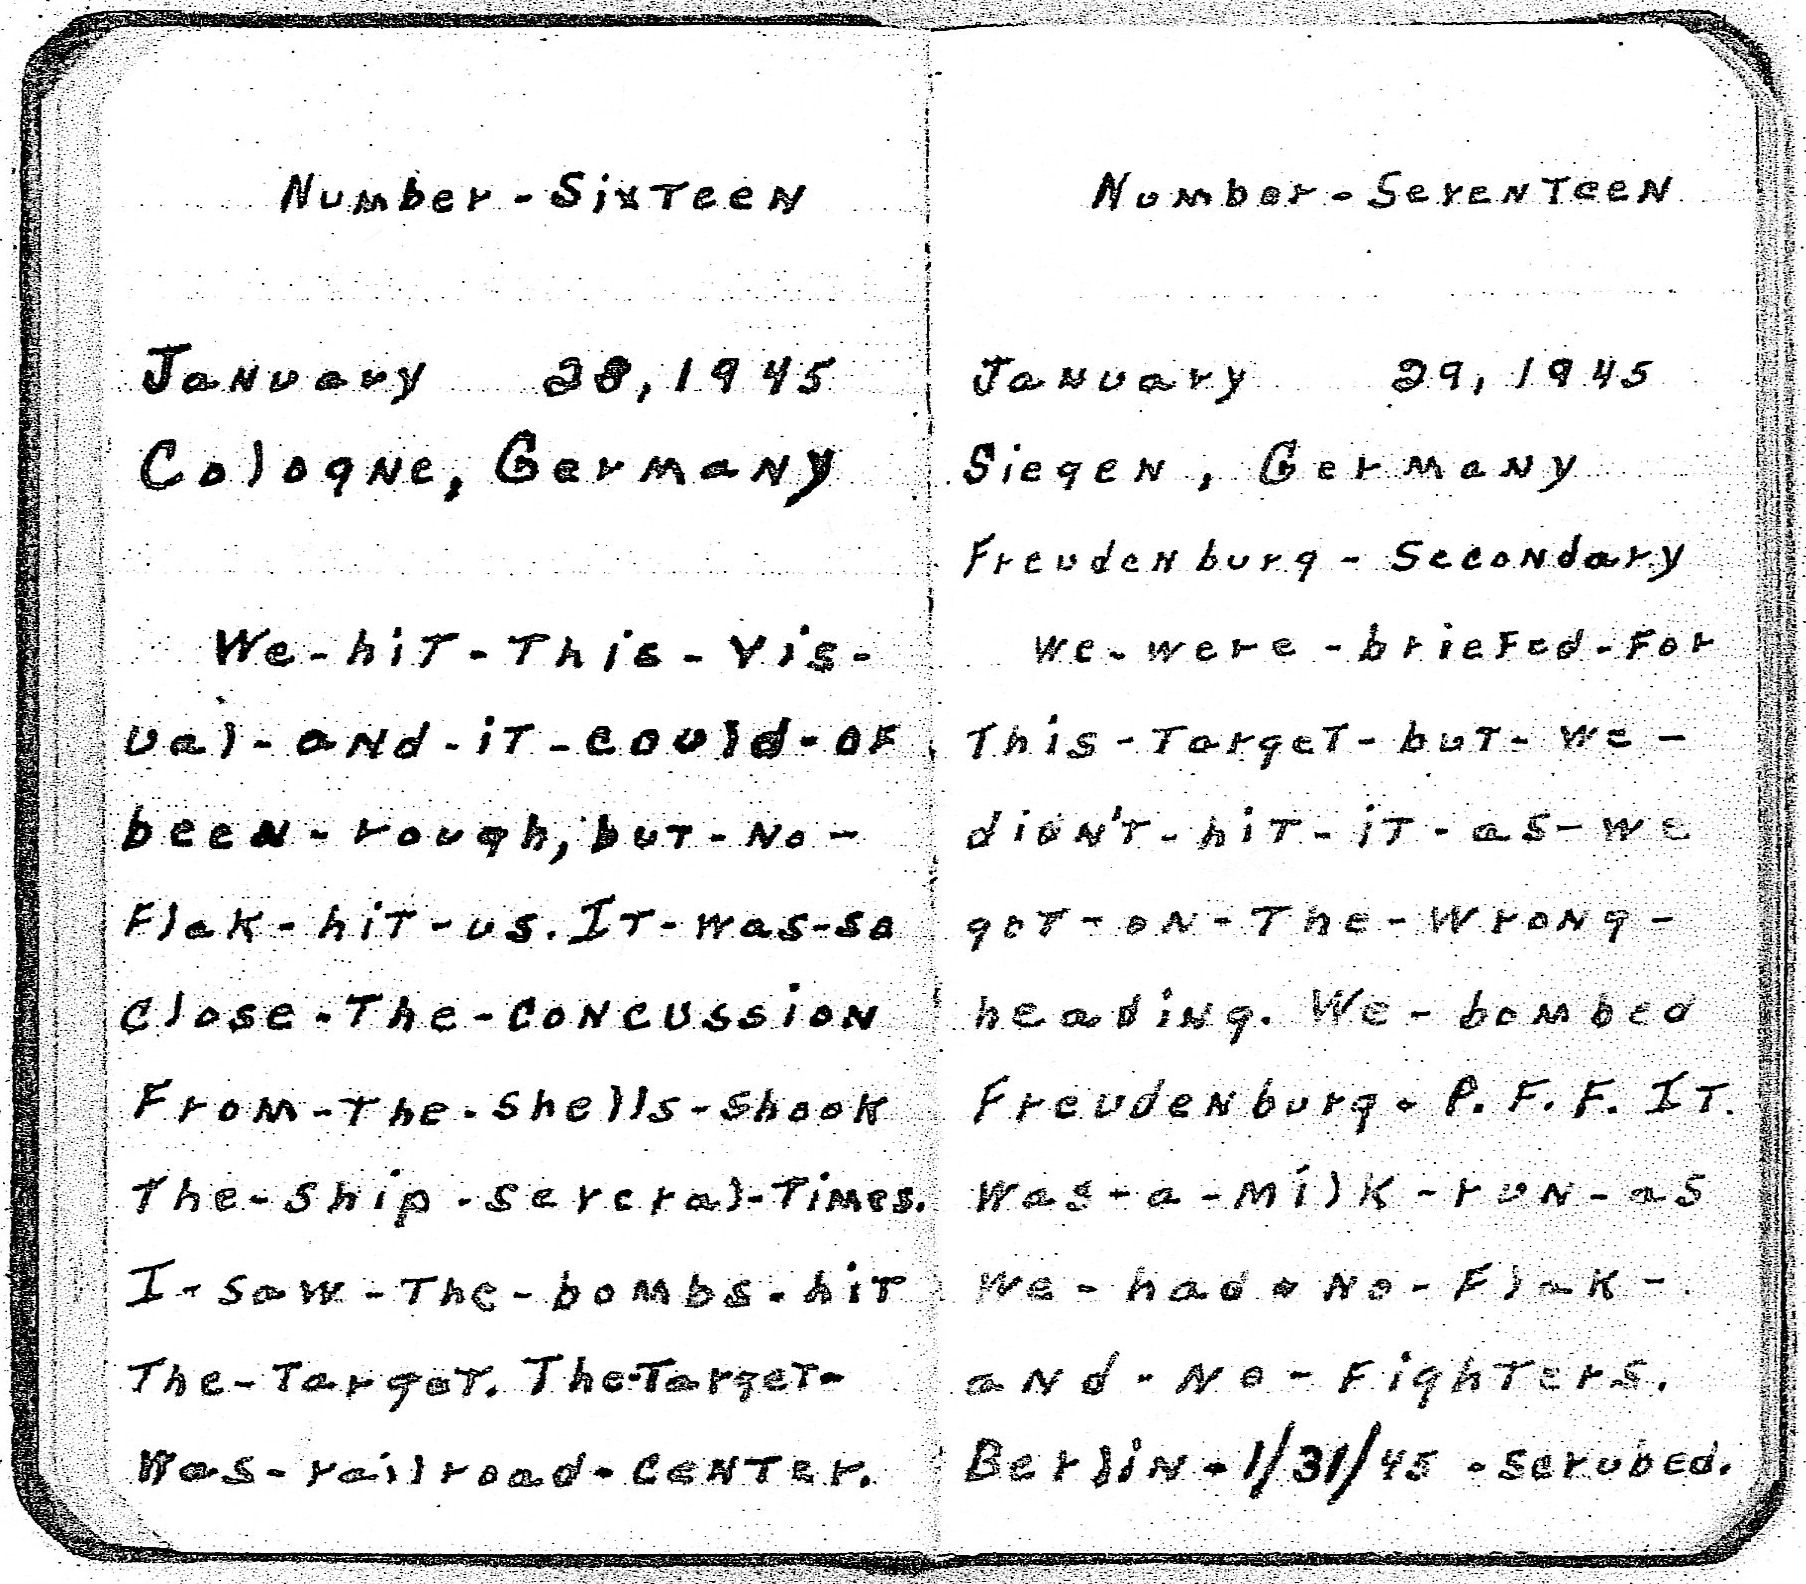 Number - Sixteen
January 28, 1945
Cologne, Germany
We-hit-This-Vis-
ual-and-it-could-of
been-rough, but-no-
Flak-hit-us. It-was-so
close-The-concussion
From-The-shells-shook
The-ship-several-Times.
I-saw-The-bombs-hit
The-Target. The-Target-
Was-railroad-center.
Number - Seventeen
January 29, 1945
Siegen, Germany
Freudenburg - Secondary
We-were-briefed-For
This-Target-but-we-
didn't-hit-it-as-we
got-on-The-Wrong-
heading. We-bombed
Freudenburg- P.F.F. It.
Was-a-milk-run-as
We-had-no-Flak-
and-no-Fighters.
Berlin-1/31/45-scrubed.